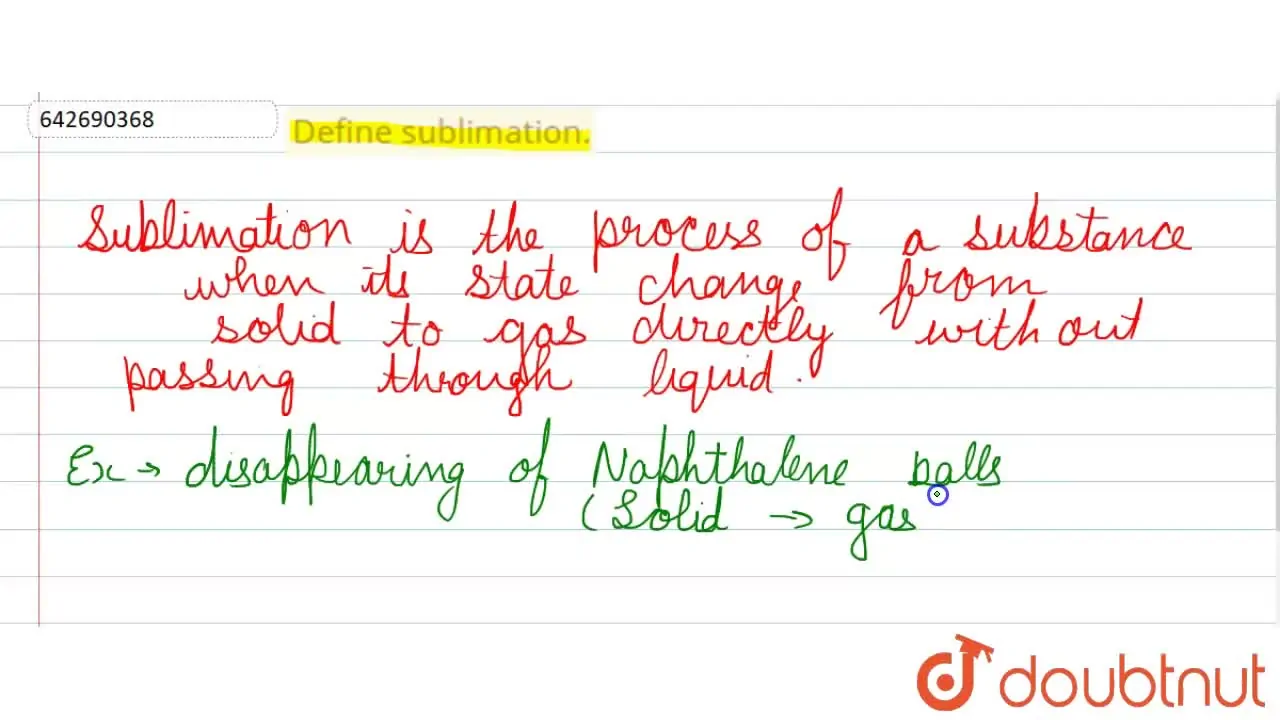 642690368
Define sublimation.
Sublimation is the process of a substance
when its state change from
solid to gas directly with out
passing through liquid.
Ex → disappearing of Naphthalene balls
(Solid → gas
doubtnut